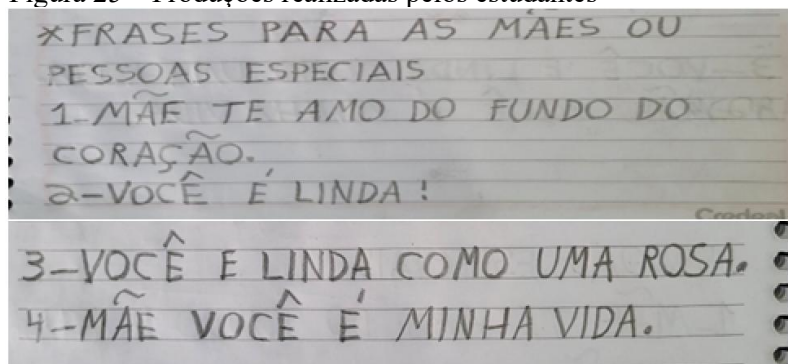 Figura 25 – Produções realizadas pelos estudantes
*FRASES PARA AS MÃES OU
PESSOAS ESPECIAIS
1-MÃE TE AMO DO FUNDO DO
CORAÇÃO.
2-VOCÊ É LINDA!
Credeal
3-VOCÊ E LINDA COMO UMA ROSA.
4-MÃE VOCÊ É MINHA VIDA.